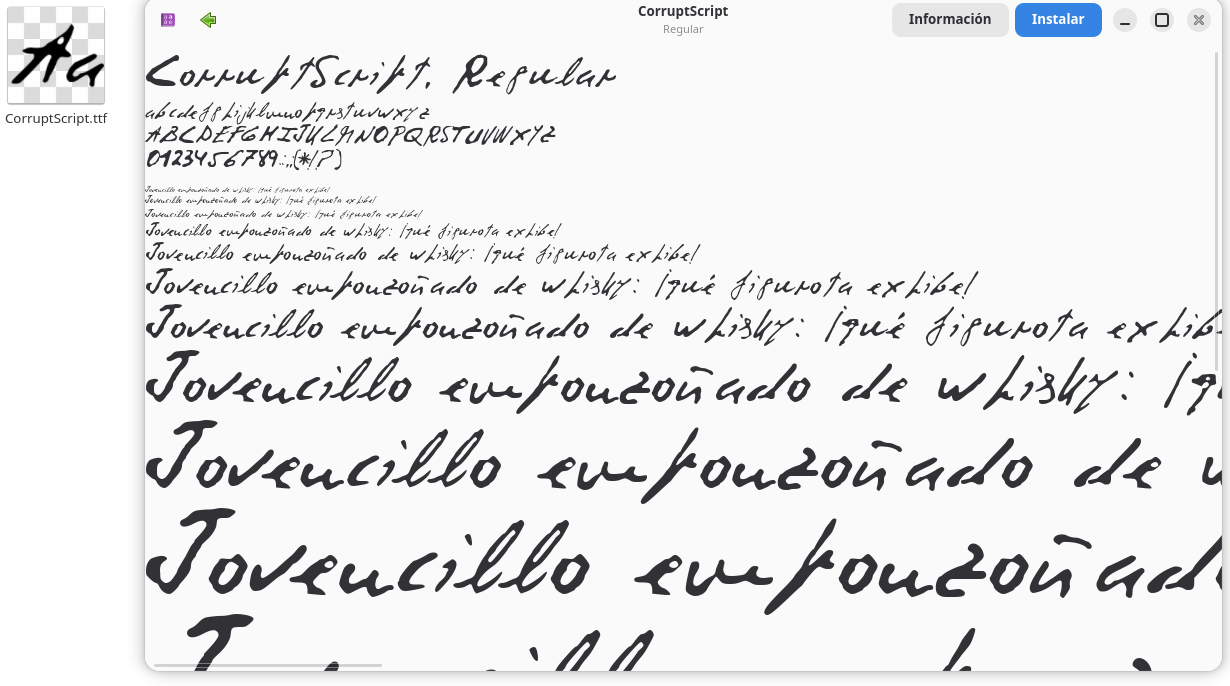 CorruptScript
Regular
Información
Instalar
CorruptScript.ttf
CorruptScript, Regular
abcdefghijklmnopqrstuvwxyz
ABCDEFGHIJKLMNOPQRSTUVWXYZ
0123456789.:,;(*!?')
Jovencillo emponzoñado de whisky: ¡qué figurota exhibe!
Jovencillo emponzoñado de whisky: ¡qué figurota exhibe!
Jovencillo emponzoñado de whisky: ¡qué figurota exhibe!
Jovencillo emponzoñado de whisky: ¡qué figurota exhibe!
Jovencillo emponzoñado de whisky: ¡qué figurota exhibe!
Jovencillo emponzoñado de whisky: ¡qué figurota exhibe!
Jovencillo emponzoñado de whisky: ¡qué figurota exhib
Jovencillo emponzoñado de whisky: ¡q
Jovencillo emponzoñado de
Jovencillo emponzoñad